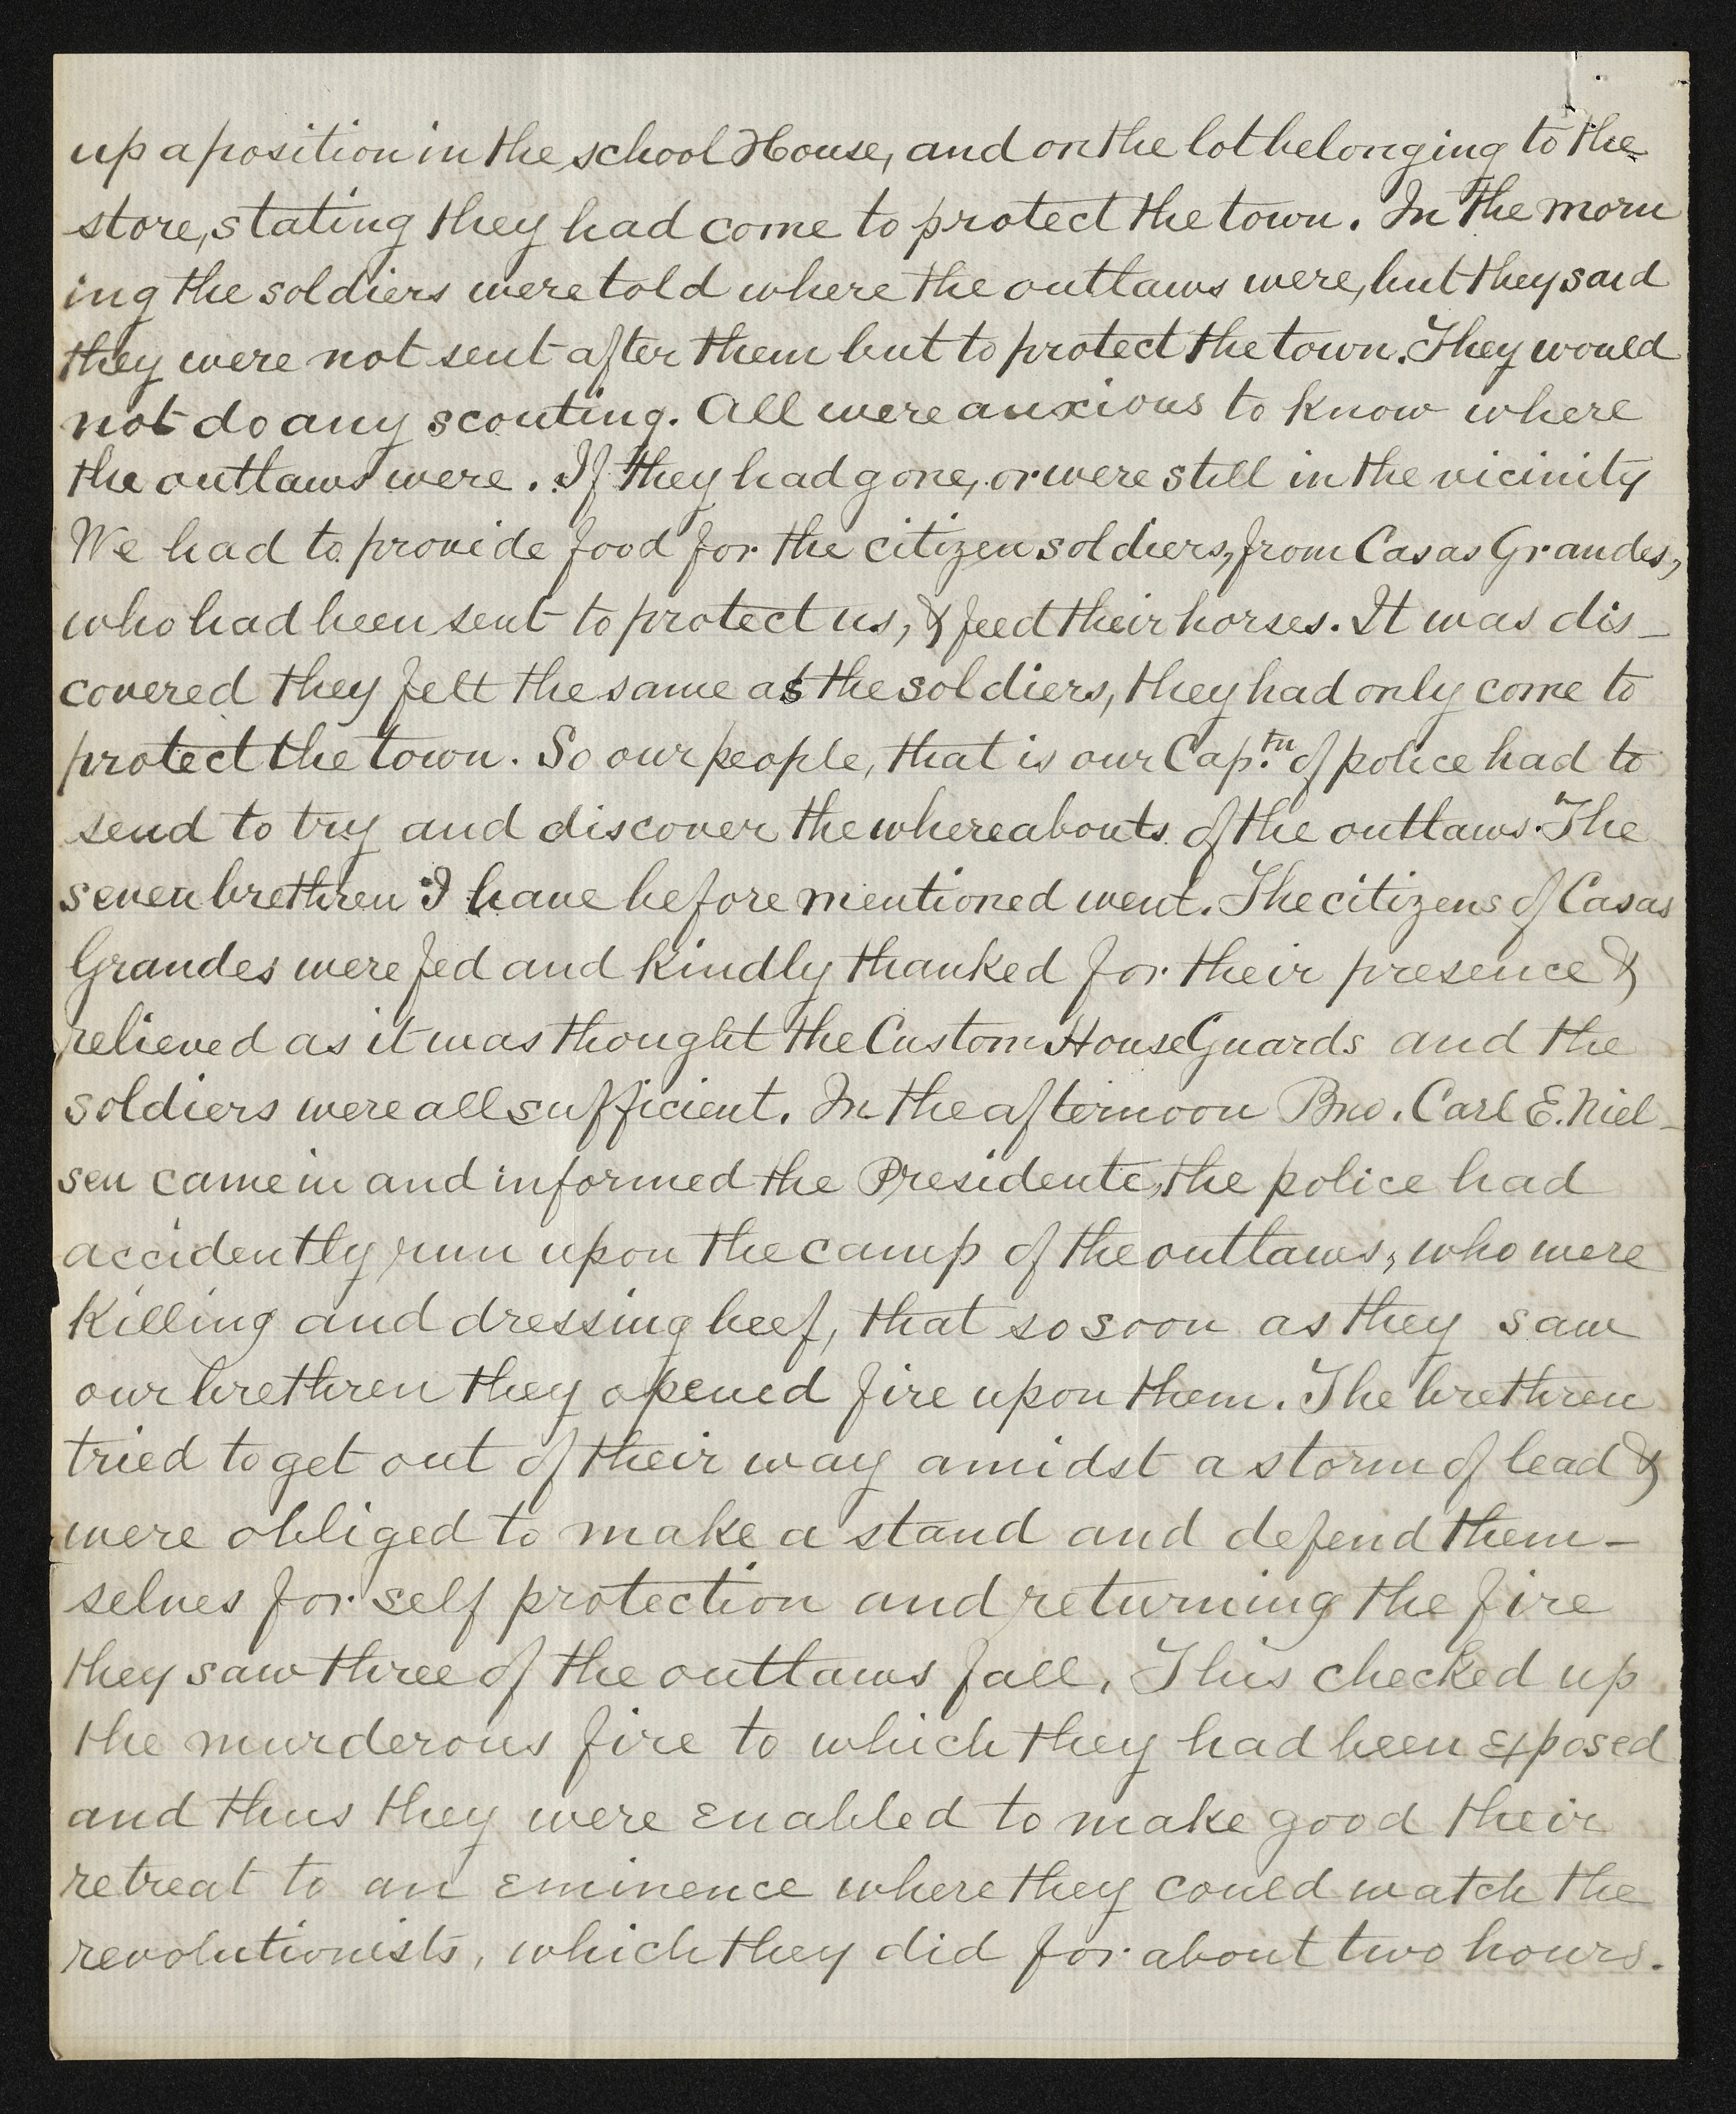 up a position in the school House, and on the lot belonging to the
store, stating they had come to protect the town. In the morn
ing the soldiers were told where the outlaws were, but they said
they were not sent after them but to protect the town. They would
not do any scouting. All were anxious to know where
the outlaws were. If they had gone, or were still in the vicinity
We had to provide food for the citizen soldiers, from Casas Grandes,
who had been sent to protect us, & feed their horses. It was dis-
covered they felt the same as the soldiers, they had only come to
protect the town. So our people, that is our Cap.tn of police had to
send to try and discover the whereabouts of the outlaws. The
seven brethren I have before mentioned went. The citizens of Casas
Grandes were fed and kindly thanked for their presence &
relieved as it was thought the Custom House Guards and the
soldiers were all sufficient. In the afternoon Bro. Carl E. Niel-
sen came in and informed the Presidente, the police had
accidently run upon the camp of the outlaws, who were
killing and dressing beef, that so soon as they saw
our brethren they opened fire upon them. The brethren
tried to get out of their way amidst a storm of lead &
were obliged to make a stand and defend them-
selves for self protection and returning the fire
they saw three of the outlaws fall. This checked up
the murderous fire to which they had been exposed
and thus they were enabled to make good their
retreat to an eminence where they could watch the
revolutionists, which they did for about two hours.